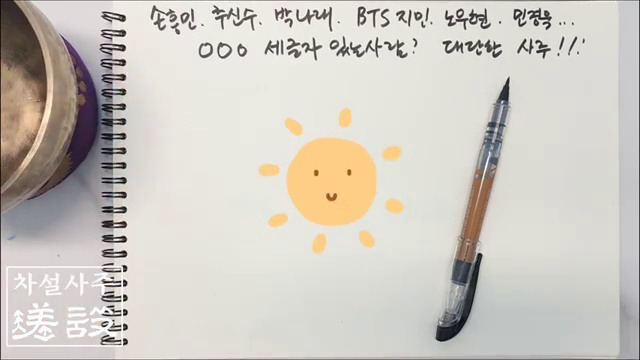 손흥민. 추신수. 박나래. BTS 지민. 노우현. 민경욱...
OOO 세글자 있는사람? 대단한 사주!!
차설사주